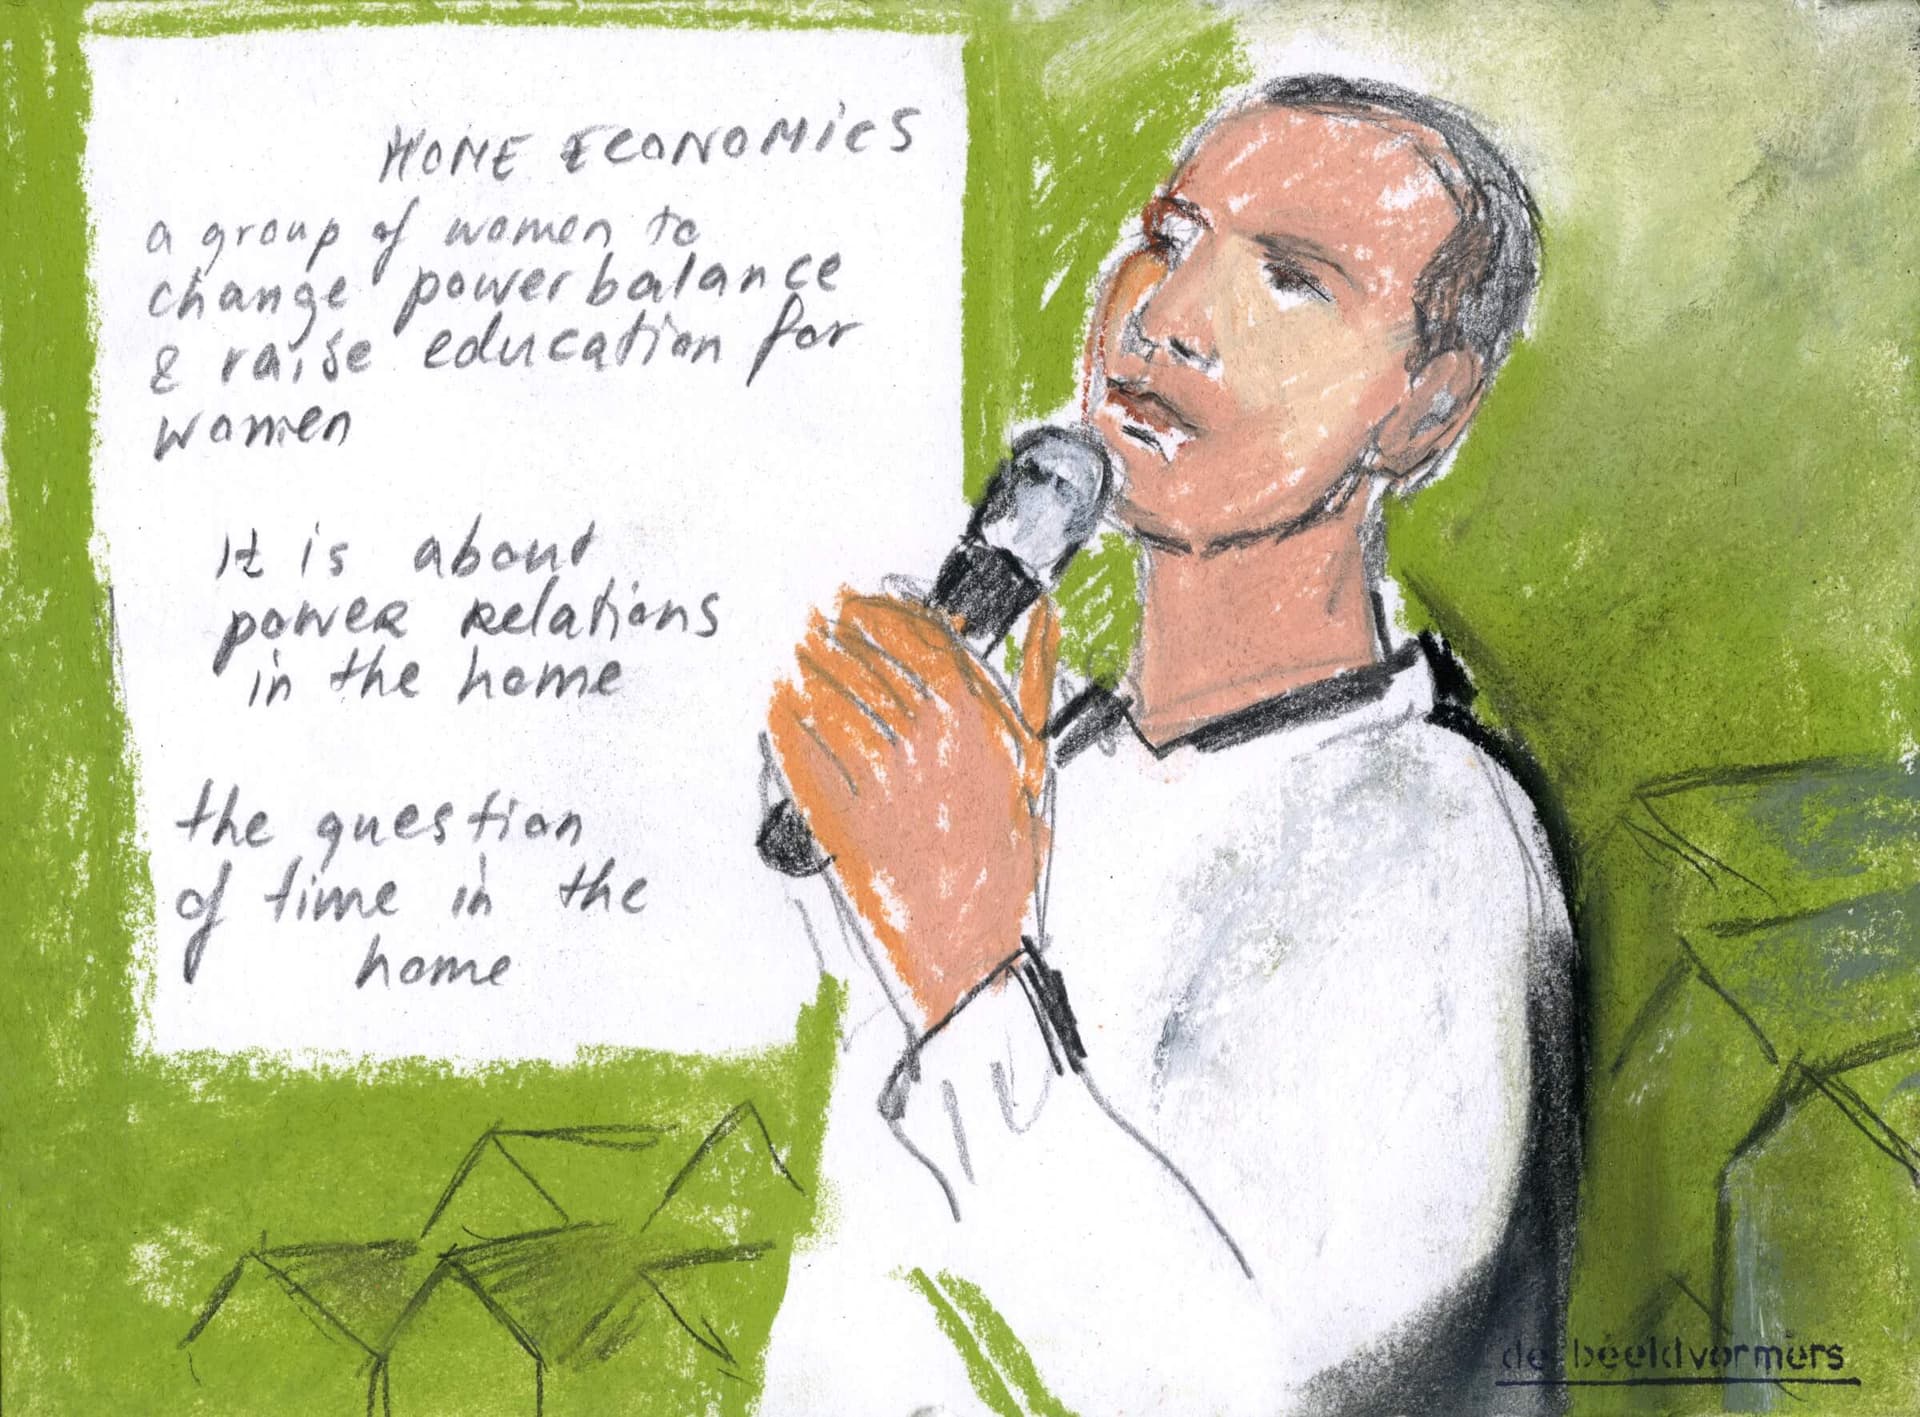 HOME ECONOMICS
a group of women to
change power balance
& raise education for
women
It is about
power relations
in the home
the question
of time in the
home
de beeldvormers